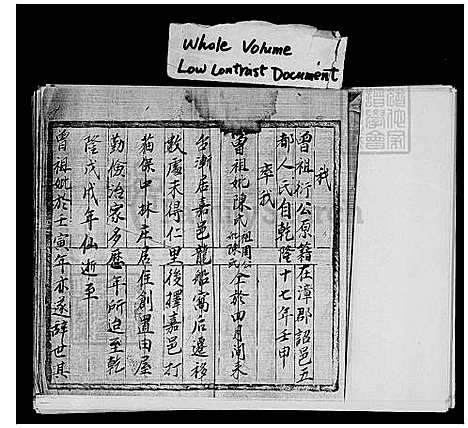 Whole Volume
Low Contrast Document
我
曾祖衍公原籍在漳郡詔邑五
都人氏自乾隆十七年壬申
率我
曾祖妣陳氏祖周公
妣陳氏全於由月南來
台漸居嘉邑龍船窩后遷移
數處未得仁里後擇嘉邑打
猫保中林庄居住創置田屋
勤儉治家多歷年所迨至乾
隆戊戌年仙逝至
曾祖妣於壬寅年亦遂辭世其